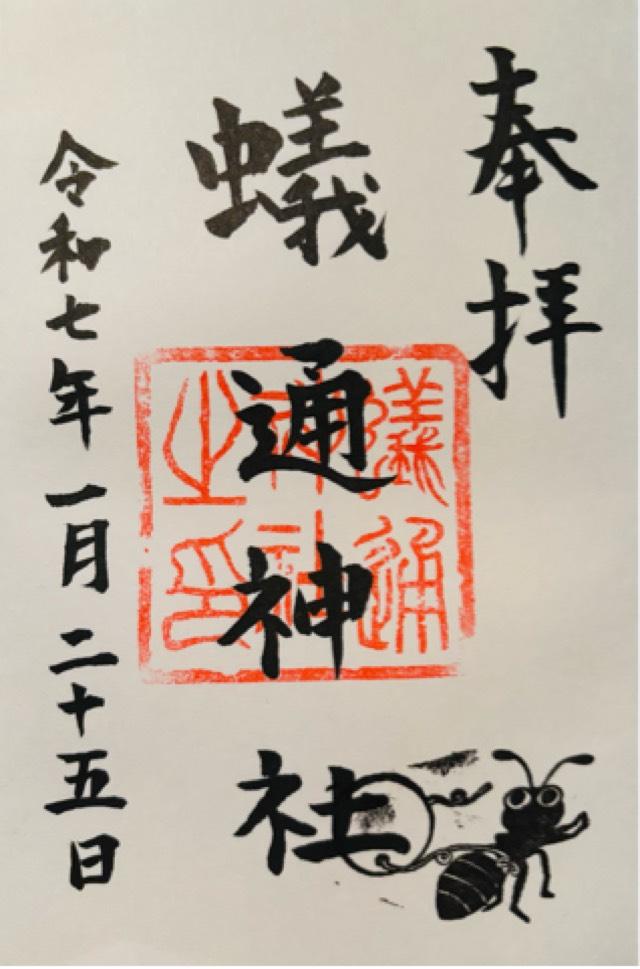 奉拝
蟻通神社
蟻通
神社
之印
令和七年一月二十五日